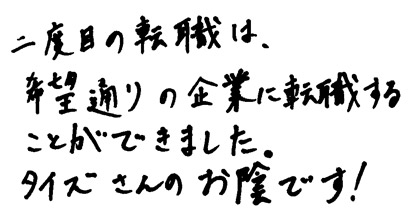 二度目の転職は、
希望通りの企業に転職する
ことができました。
タイズさんのお陰です!